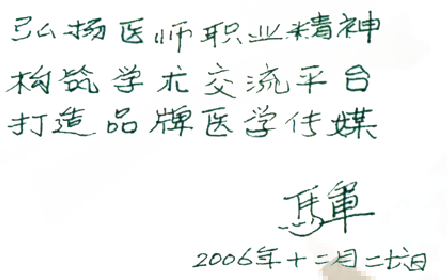 弘扬医师职业精神
构筑学术交流平台
打造品牌医学传媒
馬軍
2006年十二月二十六日